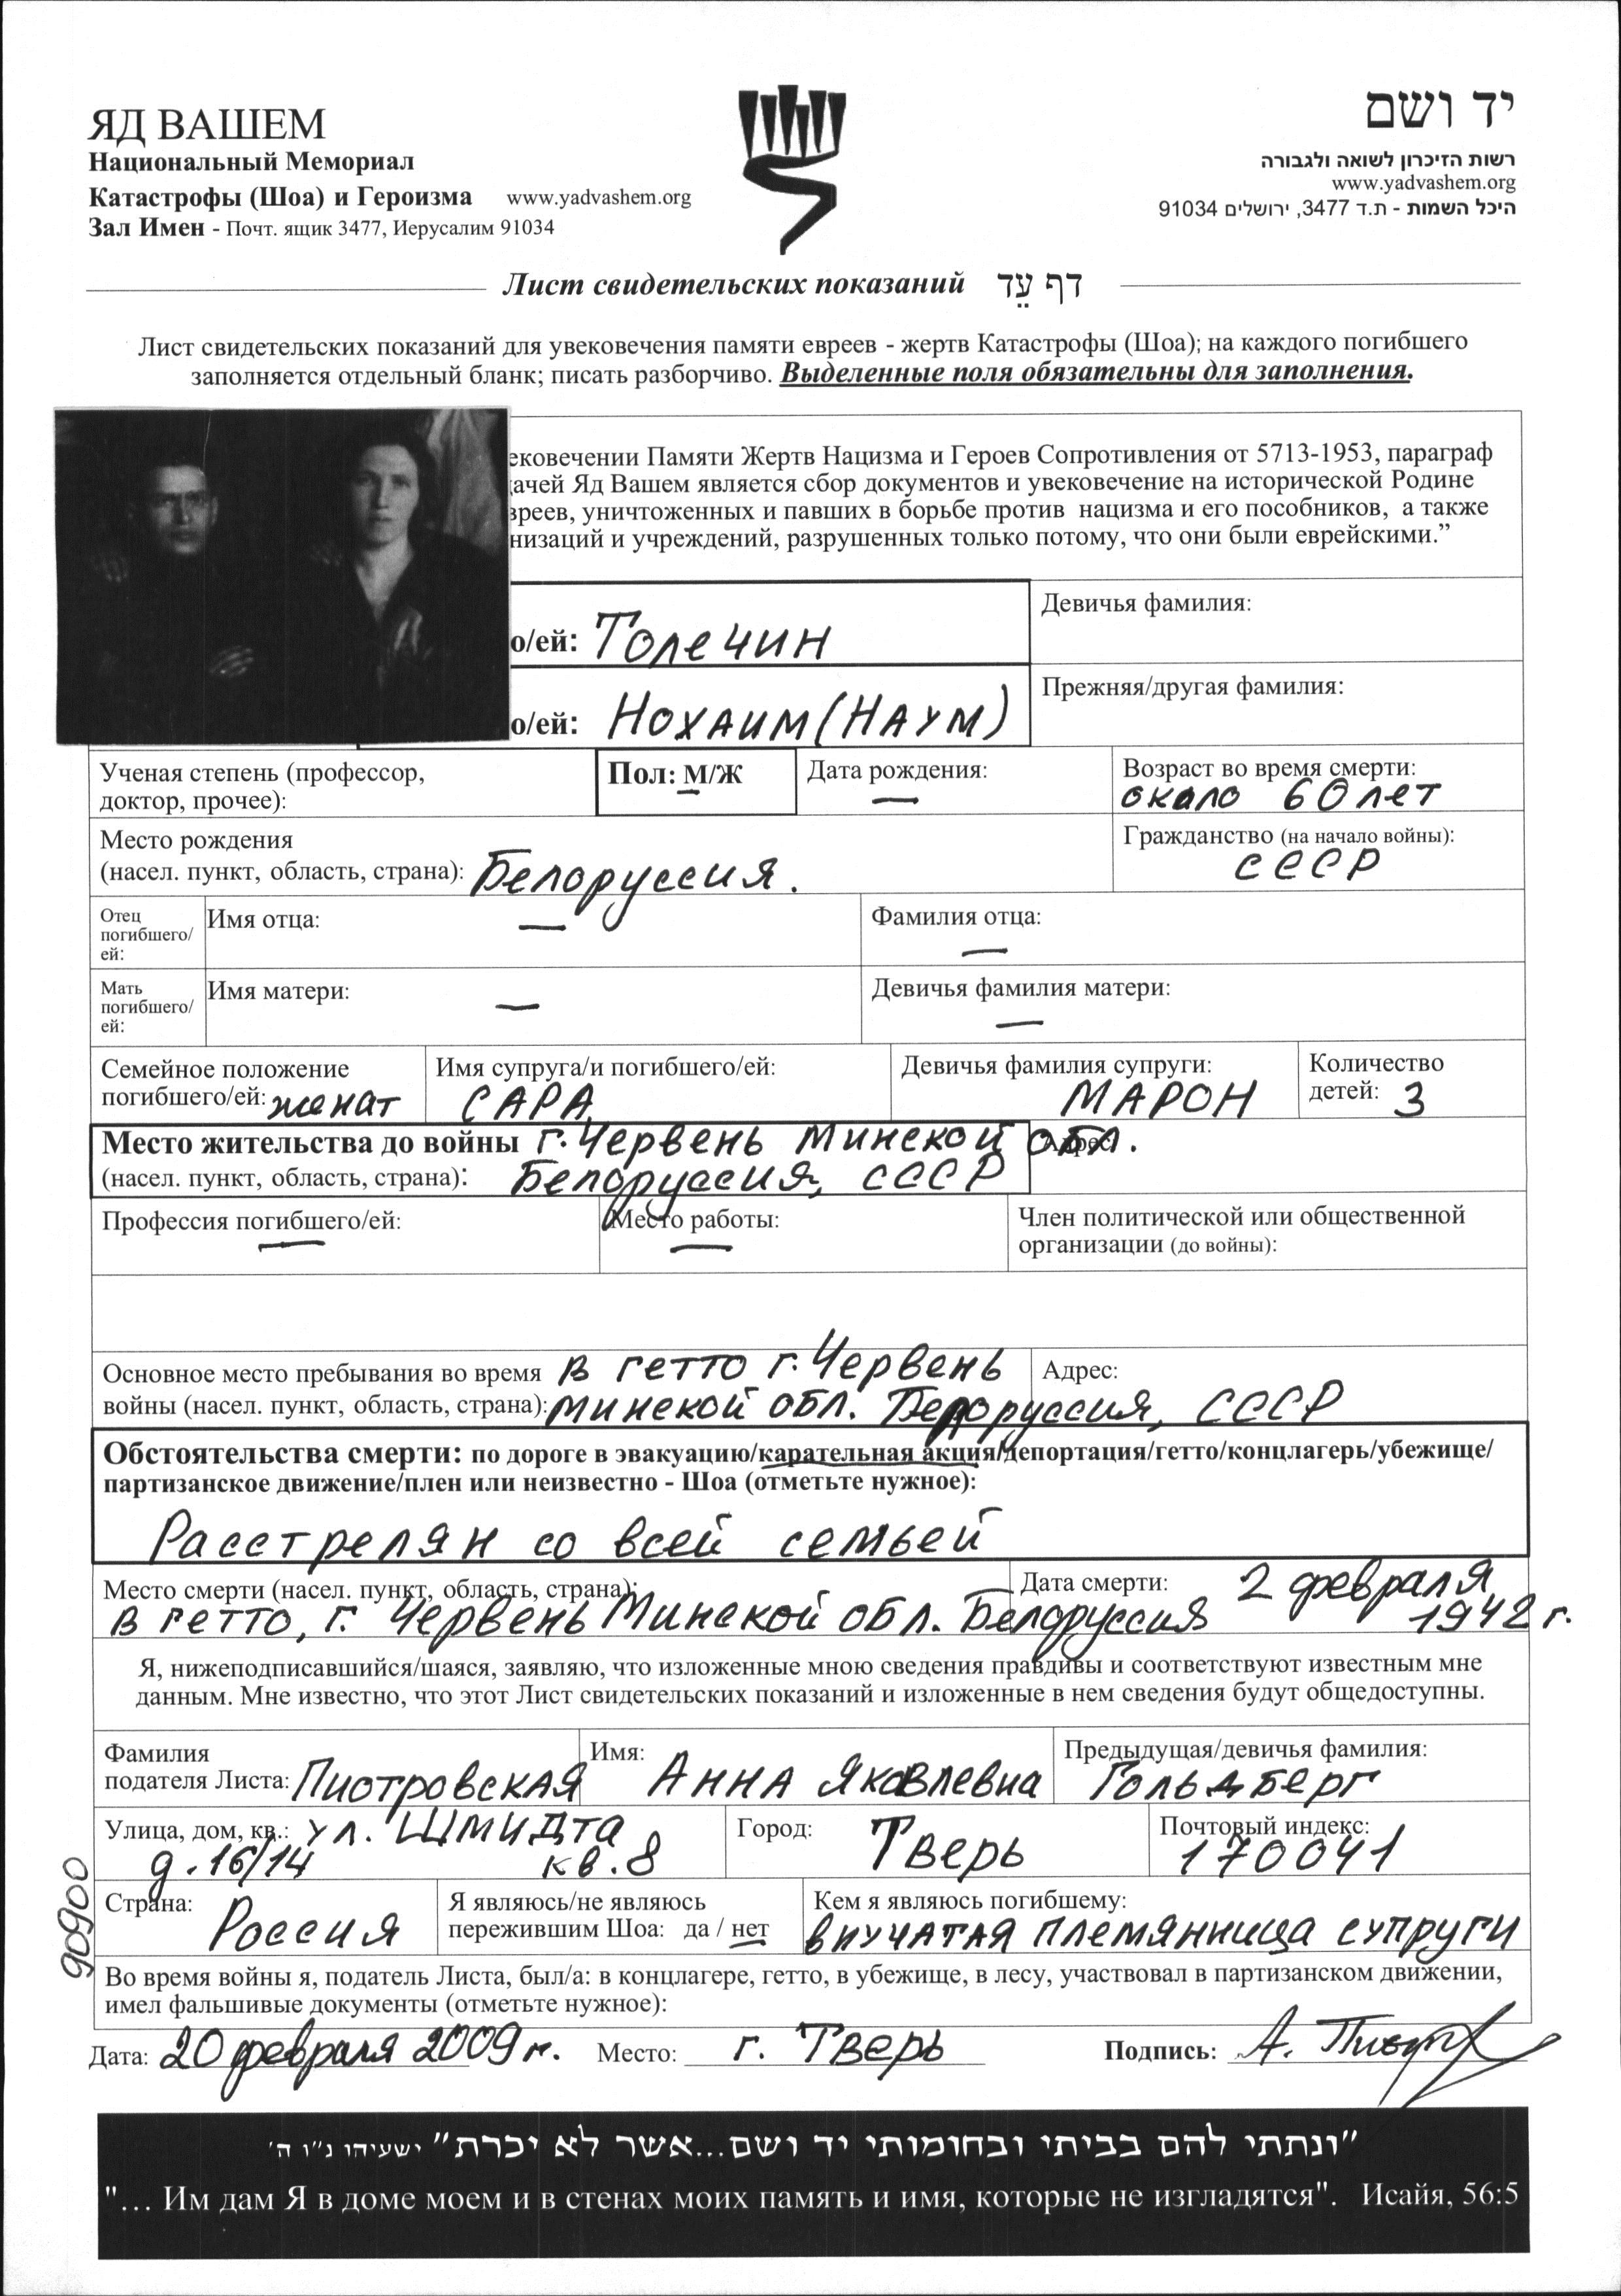 ЯД ВАШЕМ
Национальный Мемориал
Катастрофы (Шоа) и Героизма www.yadvashem.org
Зал Имен - Почт. ящик 3477, Иерусалим 91034
יד ושם
רשות הזיכרון לשואה ולגבורה
www.yadvashem.org
היכל השמות - ת.ד 3477, ירושלים 91034
Лист свидетельских показаний דף עֵד
Лист свидетельских показаний для увековечения памяти евреев - жертв Катастрофы (Шоа); на каждого погибшего
заполняется отдельный бланк; писать разборчиво. Выделенные поля обязательны для заполнения.
ековечении Памяти Жертв Нацизма и Героев Сопротивления от 5713-1953, параграф
ачей Яд Вашем является сбор документов и увековечение на исторической Родине
вреев, уничтоженных и павших в борьбе против нацизма и его пособников, а также
низаций и учреждений, разрушенных только потому, что они были еврейскими.”
о/ей: Толечин
Девичья фамилия:
о/ей: Нохаим (Наум)
Прежняя/другая фамилия:
Ученая степень (профессор,
доктор, прочее):
Пол: М/Ж
Дата рождения: —
Возраст во время смерти:
около 60 лет
Место рождения
(насел. пункт, область, страна): Белоруссия.
Гражданство (на начало войны):
СССР
Отец
погибшего/
ей:
Имя отца: —
Фамилия отца: —
Мать
погибшего/
ей:
Имя матери: —
Девичья фамилия матери: —
Семейное положение
погибшего/ей: женат
Имя супруга/и погибшего/ей:
САРА
Девичья фамилия супруги:
МАРОН
Количество
детей: 3
Место жительства до войны г. Червень Минской обл.
(насел. пункт, область, страна): Белоруссия, СССР
Адрес:
Профессия погибшего/ей: —
Место работы: —
Член политической или общественной
организации (до войны):
Основное место пребывания во время в гетто г. Червень
войны (насел. пункт, область, страна): Минской обл. Белоруссия, СССР
Адрес:
Обстоятельства смерти: по дороге в эвакуацию/карательная акция/депортация/гетто/концлагерь/убежище/
партизанское движение/плен или неизвестно - Шоа (отметьте нужное):
Расстрелян со всей семьей
Место смерти (насел. пункт, область, страна):
в гетто, г. Червень Минской обл. Белоруссия
Дата смерти: 2 февраля
1942 г.
Я, нижеподписавшийся/шаяся, заявляю, что изложенные мною сведения правдивы и соответствуют известным мне
данным. Мне известно, что этот Лист свидетельских показаний и изложенные в нем сведения будут общедоступны.
Фамилия
подателя Листа: Пиотровская
Имя: Анна Яковлевна
Предыдущая/девичья фамилия:
Гольдберг
Улица, дом, кв.: ул. Шмидта
д. 16/14 кв. 8
Город: Тверь
Почтовый индекс:
170041
Страна: Россия
Я являюсь/не являюсь
пережившим Шоа: да / нет
Кем я являюсь погибшему:
внучатая племянница супруги
90900
Во время войны я, податель Листа, был/а: в концлагере, гетто, в убежище, в лесу, участвовал в партизанском движении,
имел фальшивые документы (отметьте нужное):
Дата: 20 февраля 2009 г. Место: г. Тверь Подпись: А.
"ונתתי להם בביתי ובחומותי יד ושם...אשר לא יכרת" ישעיהו נ"ו ה'
"… Им дам Я в доме моем и в стенах моих память и имя, которые не изгладятся". Исайя, 56:5